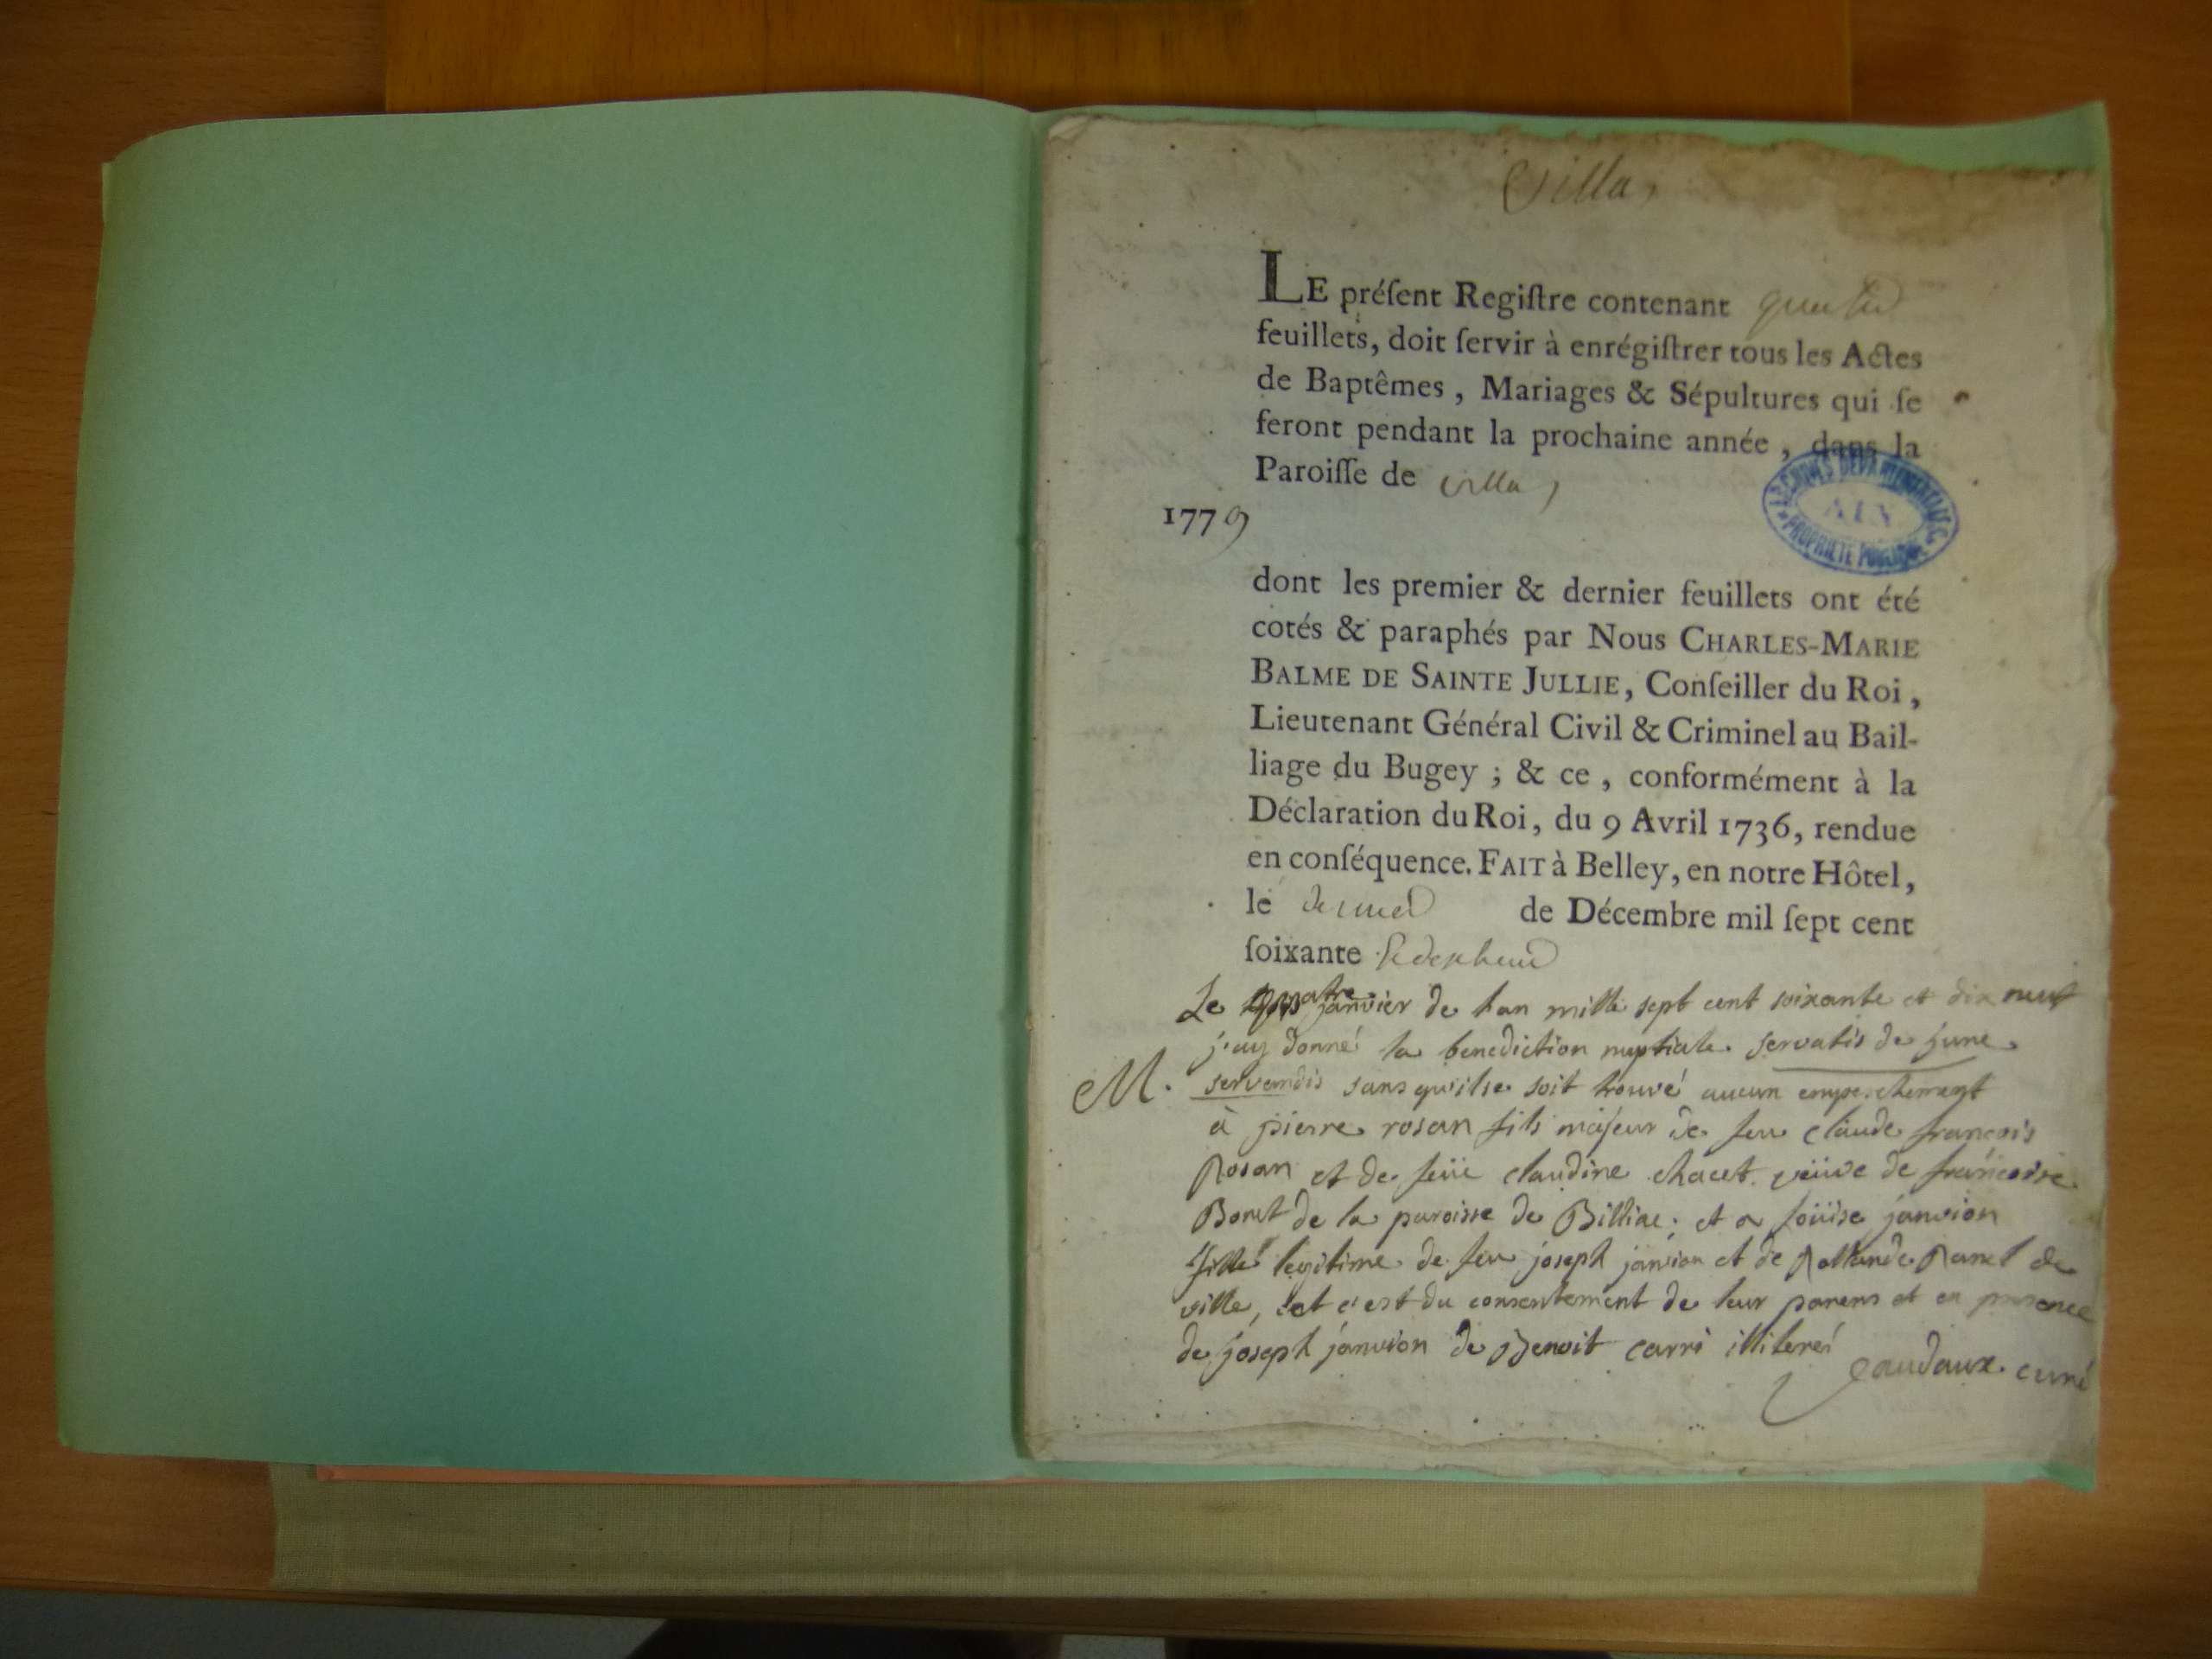 Villa,
LE préſent Regiſtre contenant quatre
feuillets, doit ſervir à enrégiſtrer tous les Actes
de Baptêmes, Mariages & Sépultures qui ſe
feront pendant la prochaine année, dans la
Paroiſſe de villa,
ARCHIVES DÉPARTEMENTALES
AIN
PROPRIÉTÉ PUBLIQUE
1779
dont les premier & dernier feuillets ont été
cotés & paraphés par Nous CHARLES-MARIE
BALME DE SAINTE JULLIE, Conſeiller du Roi,
Lieutenant Général Civil & Criminel au Bail-
liage du Bugey; & ce, conformément à la
Déclaration du Roi, du 9 Avril 1736, rendue
en conſéquence. FAIT à Belley, en notre Hôtel,
le de Décembre mil ſept cent
ſoixante
Le quatre janvier de lan mille sept cent soixante et dix neuf
j'ay donné la benediction nuptiale servatis de jure
M. servandis sans qu'il se soit trouvé aucun empechement
à pierre rosan fils majeur de feu claude francois
Rosan et de feüe claudine chacet veüve de francoise
Bonet de la paroisse de Billiac. et a loüise janvion
fille legitime de feu joseph janvion et de Rollande de
ville, et c'est du consentement de leur parens et en presence
de joseph janvion de Benoit carri illiteré
caudaux. curé